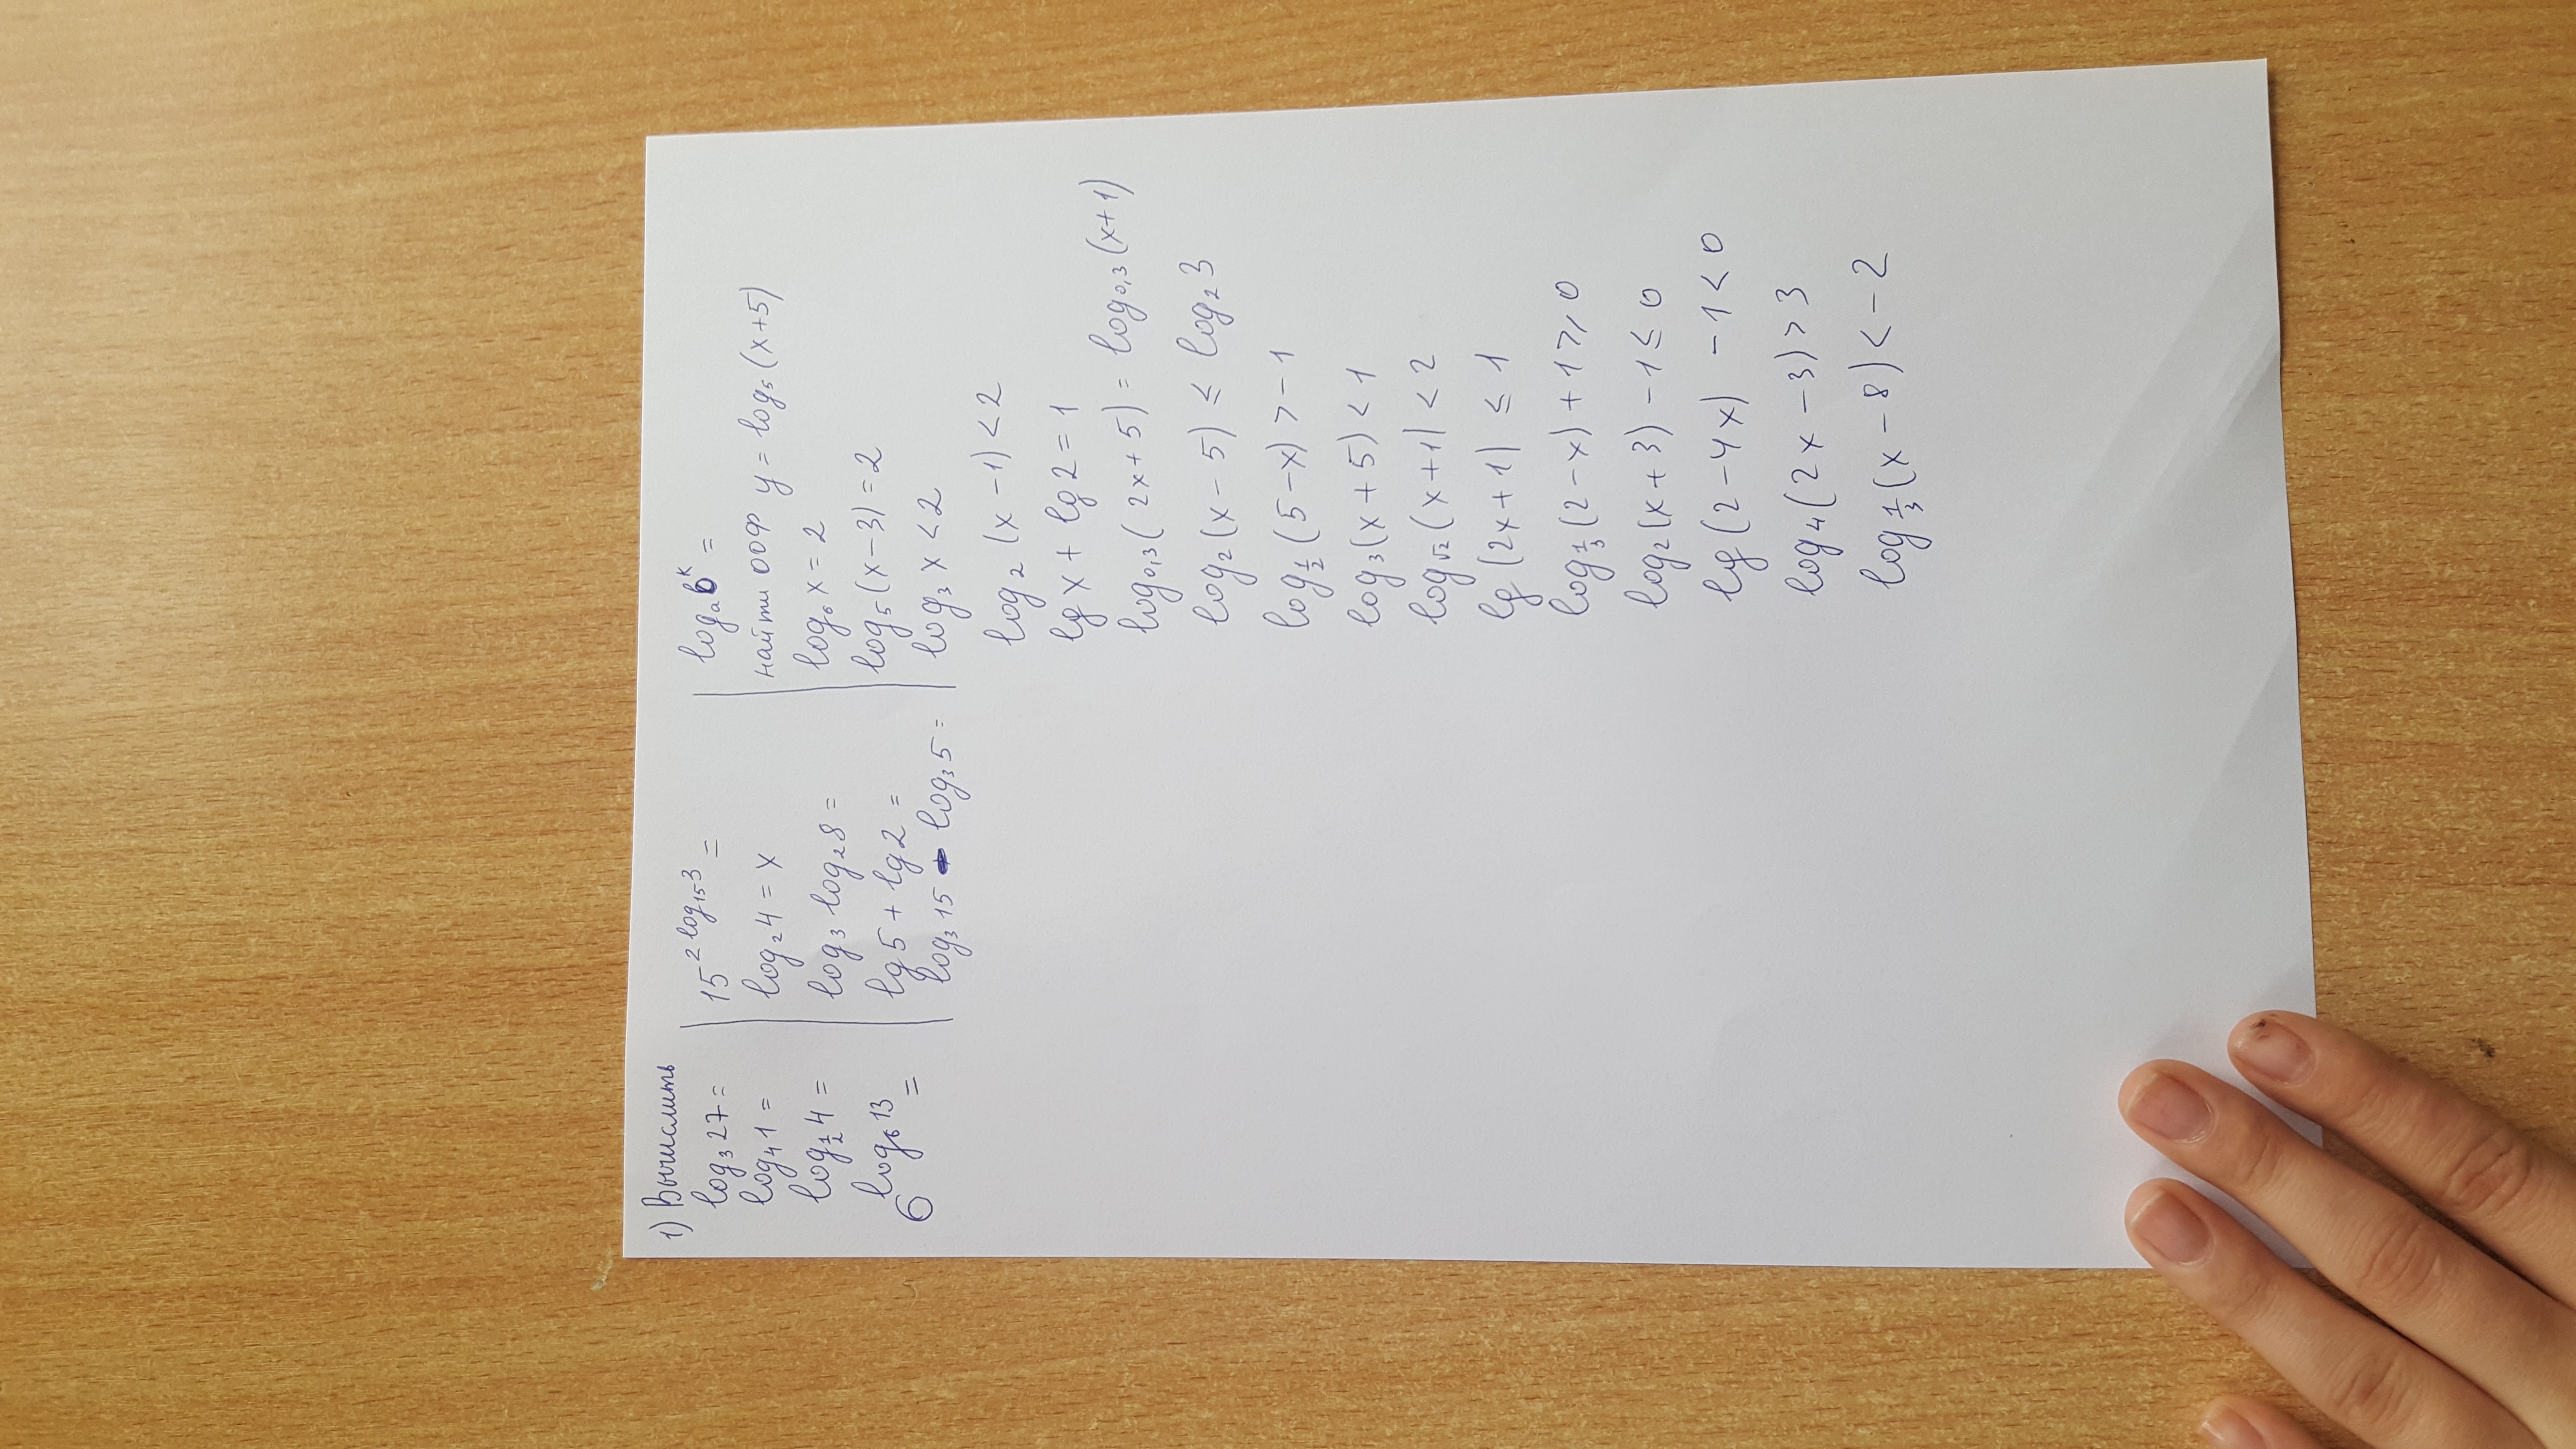 1) Вычислить
log₃27=
log₄1=
log_½4=
6^log₆13=
15^2log₁₅3=
log₂4=x
log₃log₂8=
lg5+lg2=
log₃15-log₃5=
logₐbᵏ=
найти ООФ y=log₅(x+5)
log₆x=2
log₅(x-3)=2
log₃x<2
log₂(x-1)<2
lgx+lg2=1
log₀,₃(2x+5)=log₀,₃(x+1)
log₂(x-5)≤log₂3
log_½(5-x)>-1
log₃(x+5)<1
log_√2(x+1)<2
lg(2x+1)≤1
log_⅓(2-x)+1≥0
log₂(x+3)-1≤0
lg(2-4x)-1<0
log₄(2x-3)>3
log_⅓(x-8)<-2